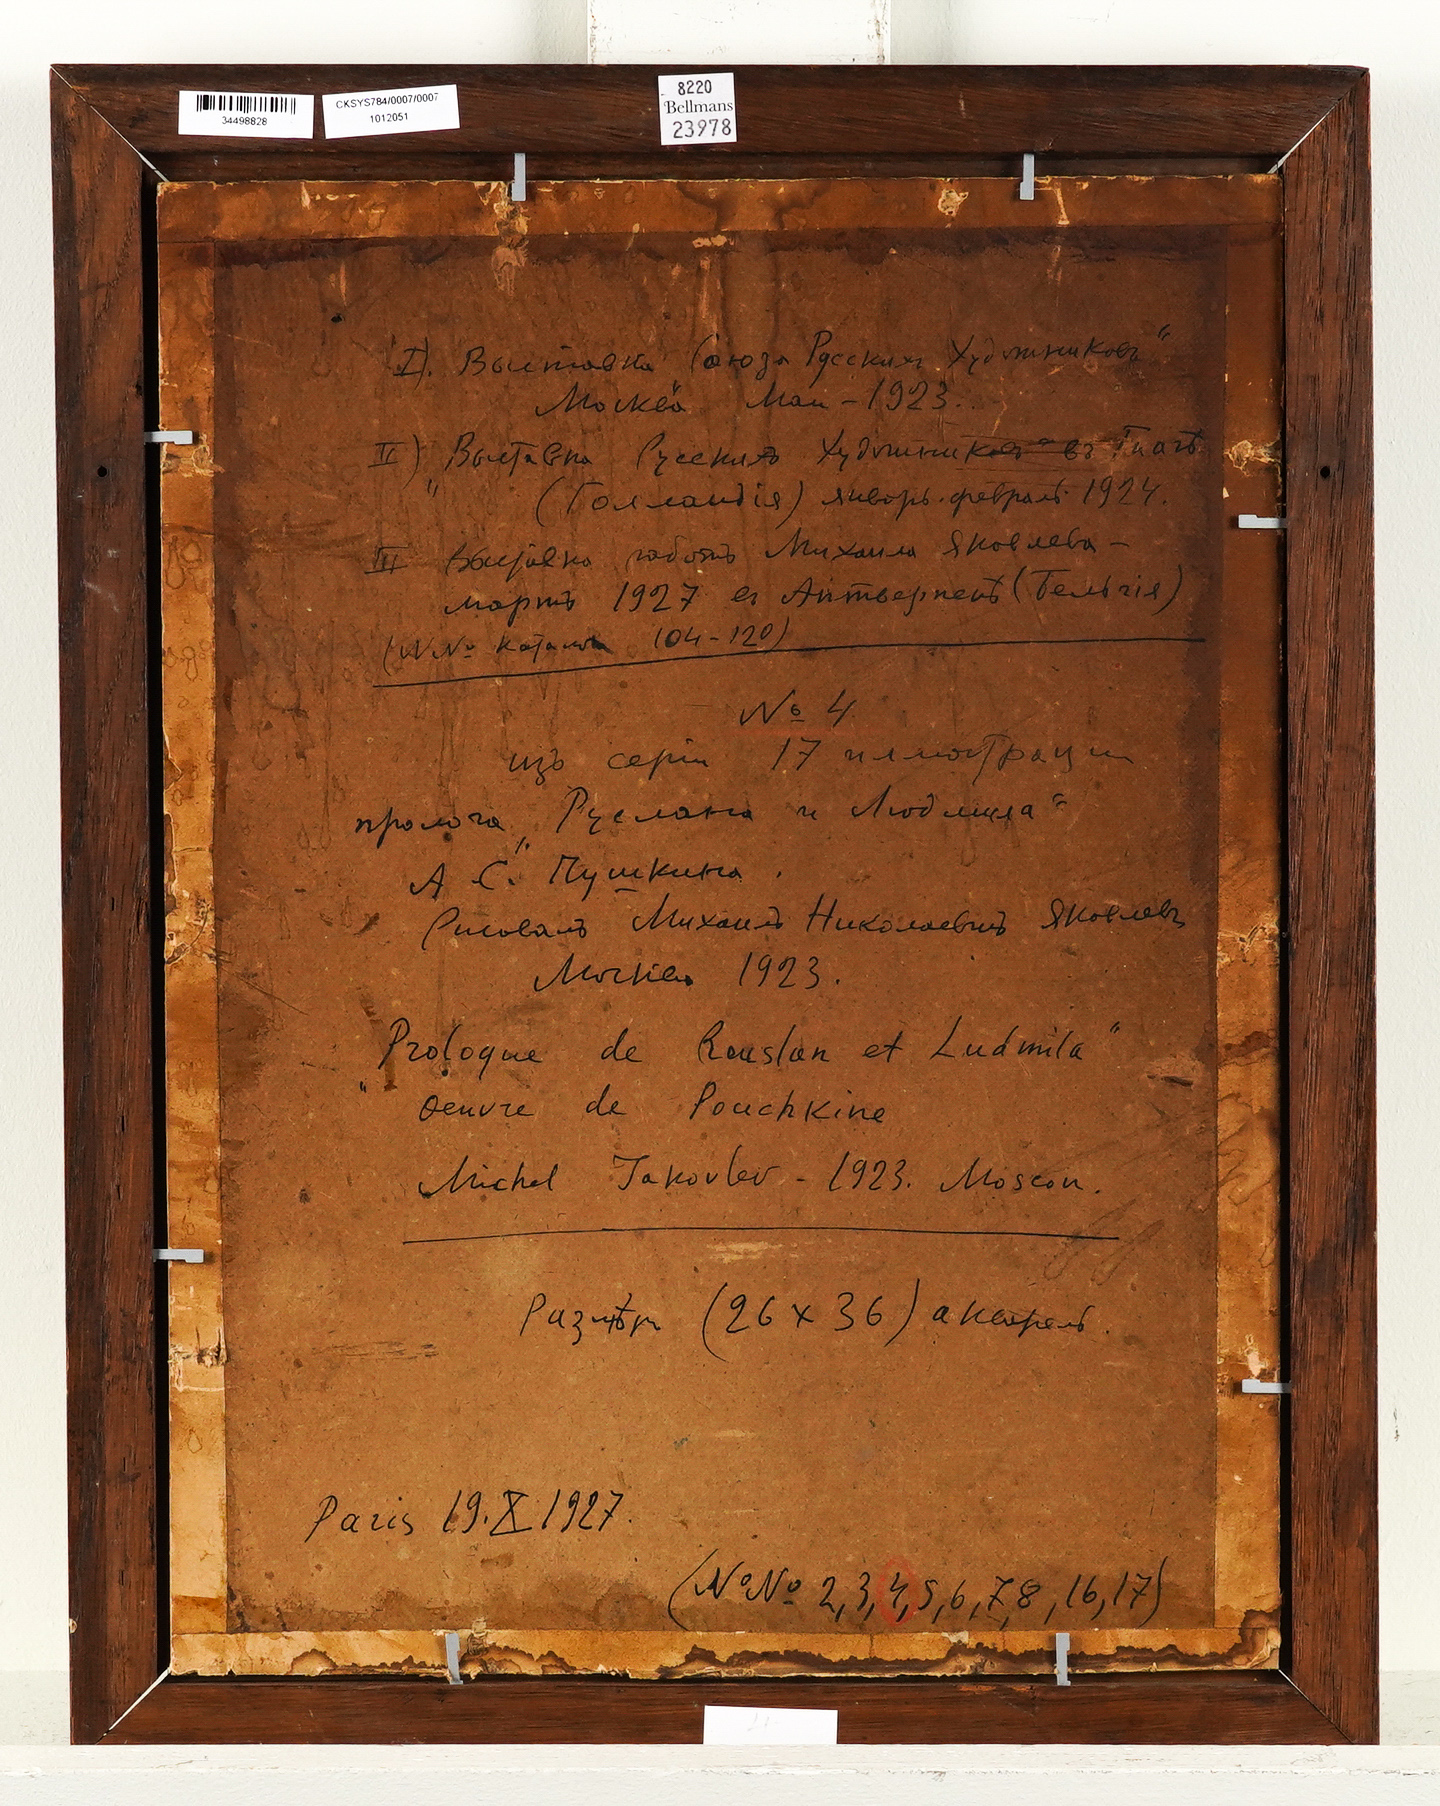 34498828
CKSYS784/0007/0007
1012051
8220
Bellmans
23978
I). Выставка Союза Русских Художниковъ“
Москва Май - 1923.
II) „Выставка Русскихъ Художниковъ“ въ Гаагѣ
(Голландія) январь-февраль 1924.
III Выставка работъ Михаила Яковлева -
мартъ 1927 въ Антверпенѣ (Бельгія)
(№№ каталога 104-120)
№ 4
изъ серіи 17 иллюстраціи
пролога „Руслана и Людмила“
А. С. Пушкина.
Рисовалъ Михаилъ Николаевичъ Яковлевъ
Москва 1923.
„Prologue de Rouslan et Ludmila“
Oeuvre de Pouchkine
Michel Jakovlev - 1923. Moscou.
Размѣръ (26 x 36) акварель.
Paris 19.X.1927.
(№№ 2,3,4,5,6,7,8,16,17)
4